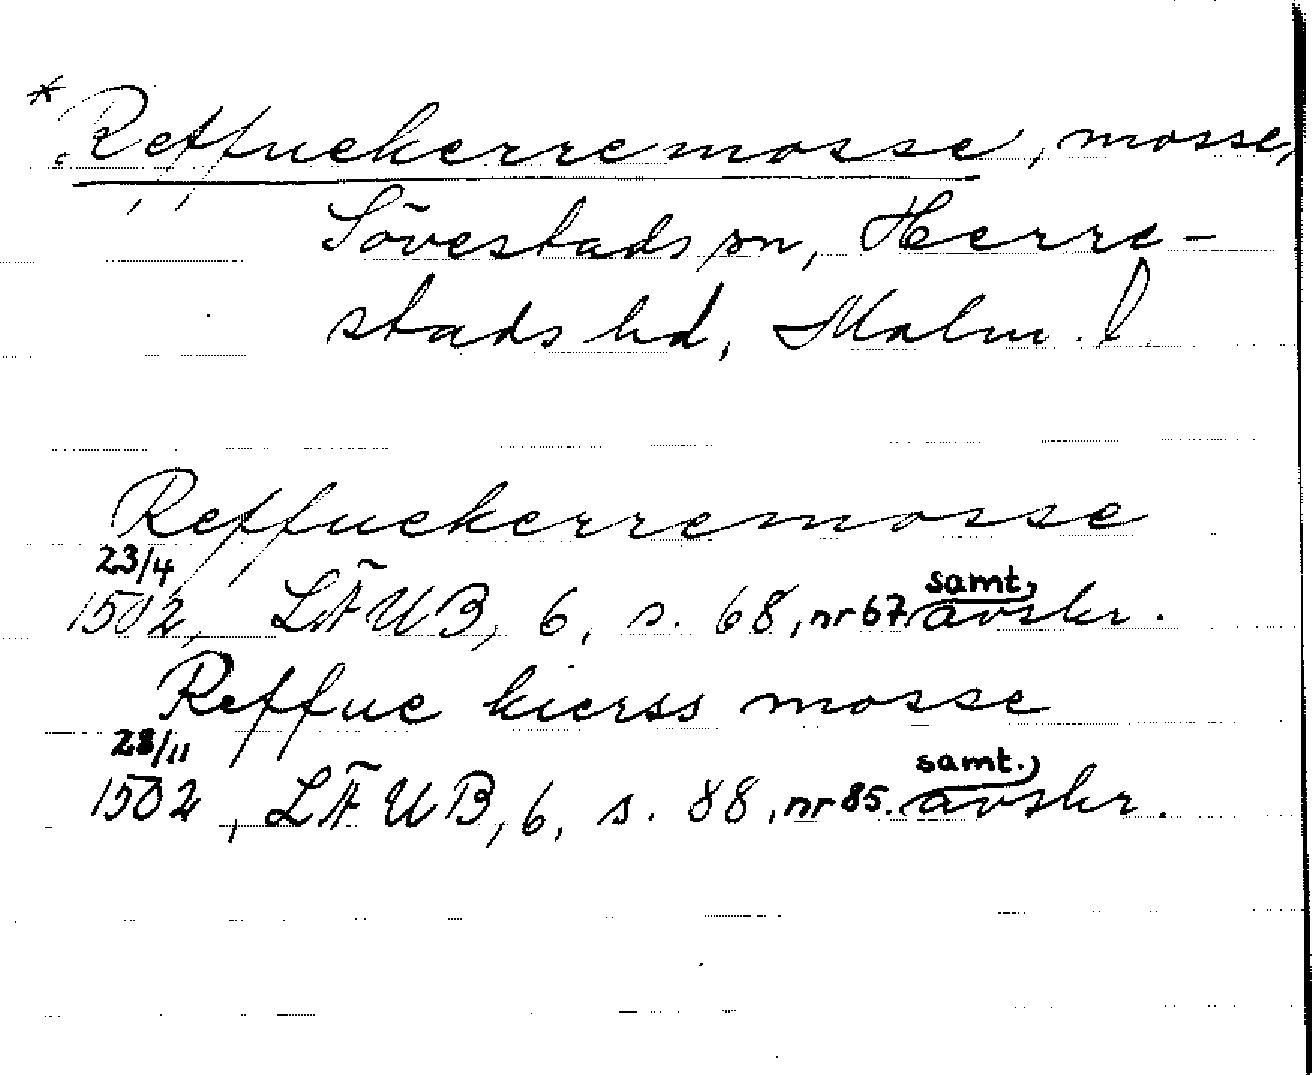 * Reffuekerremosse, mosse,
Sövestads sn, Herre-
stads hd, Malm. l
Reffuekerremosse
23/4
1502, LÄUB, 6, s. 68, nr 67. samt, avskr.
Reffue kierss mosse
28/11
1502, LÄUB, 6, s. 88, nr 85. samt. avskr.